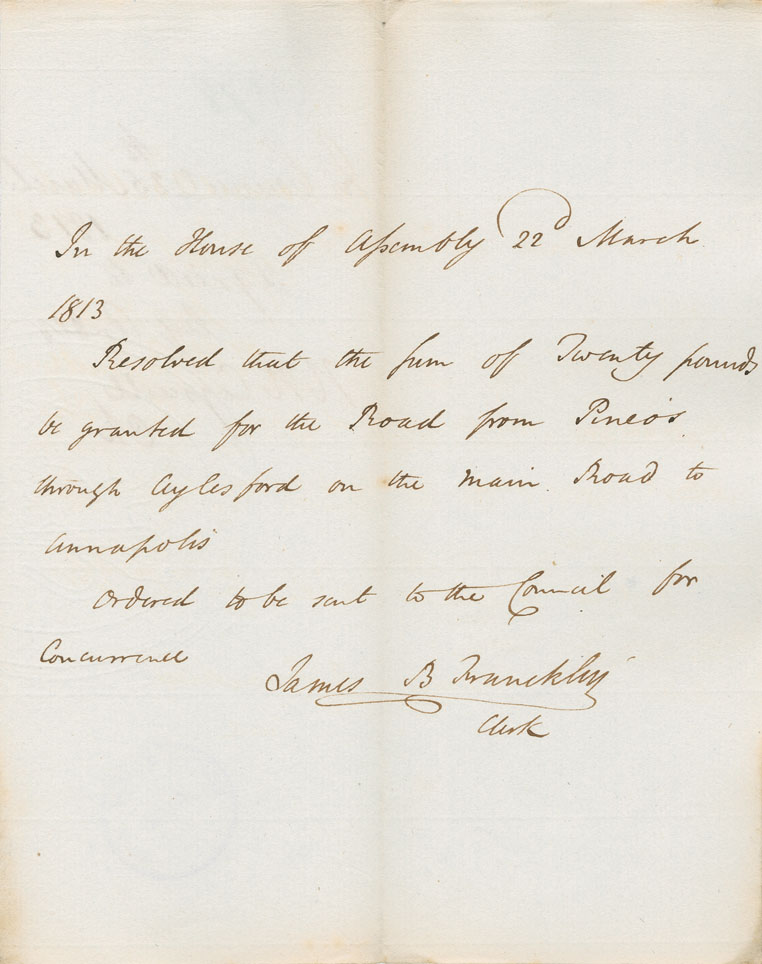 In the House of Assembly 22d March
1813
Resolved that the sum of Twenty pounds
be granted for the Road from Pineo's
through Aylesford on the main Road to
Annapolis
Ordered to be sent to the Council for
Concurrence
James B Francklin
Clerk